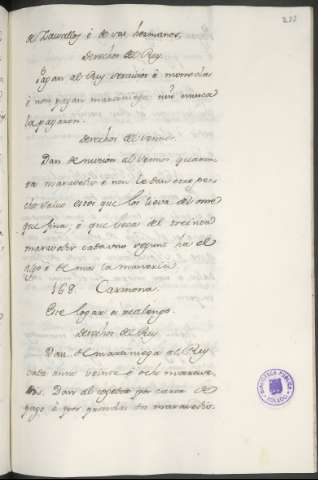 de é de sus hermanos.
Derechos del Rey.
Pagan al Rey servicios é monedas
é non pagan martiniega nin nunca
la pagaron.
Derechos del Señor.
Dan de nuncion al Señor quaren-
ta maravedis é non le dan otro pe-
cho salvo esto que los lieva del ome
que fina, é que lieva del treinta
maravedis cada uno segunt ha el
é de mas la mañeria.
168 Carmona.
Este logar es realengo.
Derechos del Rey.
Dan de martiniega al Rey
cada anno veinte é ocho marave-
dis. Dan al cogedor por carta de
pago é por maravedis.
BIBLIOTECA PUBLICA
TOLEDO